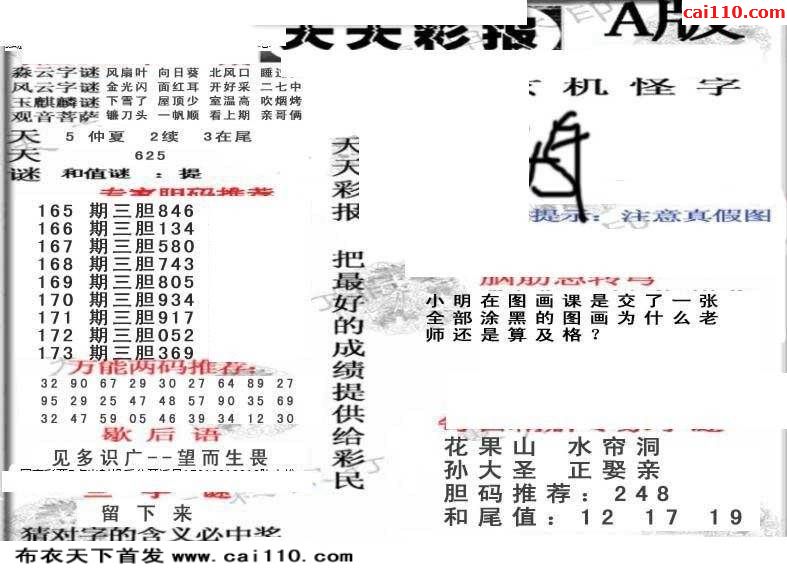 天天彩报
A版
cai110.com
森云字谜 风扇叶 向日葵 北风口 睡过
风云字谜 金光闪 面红耳 开好采 二七中
玉麒麟谜 下雪了 屋顶少 室温高 吹烟烤
观音菩萨 镰刀头 一帆顺 看上期 亲哥俩
天 5 仲夏 2续 3在尾
天 625
谜 和值谜 ：提
专家胆码推荐
165 期三胆846
166 期三胆134
167 期三胆580
168 期三胆743
169 期三胆805
170 期三胆934
171 期三胆917
172 期三胆052
173 期三胆369
万能两码推荐:
32 90 67 29 30 27 64 89 27
95 29 25 47 48 57 90 35 69
32 47 59 05 46 39 34 12 30
歇后语
见多识广--望而生畏
三字谜
留下来
猜对字的含义必中奖
天天彩报 把最好的成绩提供给彩民
机怪字
提示：注意真假图
脑筋急转弯
小明在图画课是交了一张
全部涂黑的图画为什么老
师还是算及格？
花果山 水帘洞
孙大圣 正娶亲
胆码推荐：248
和尾值：12 17 19
布衣天下首发 www.cai110.com